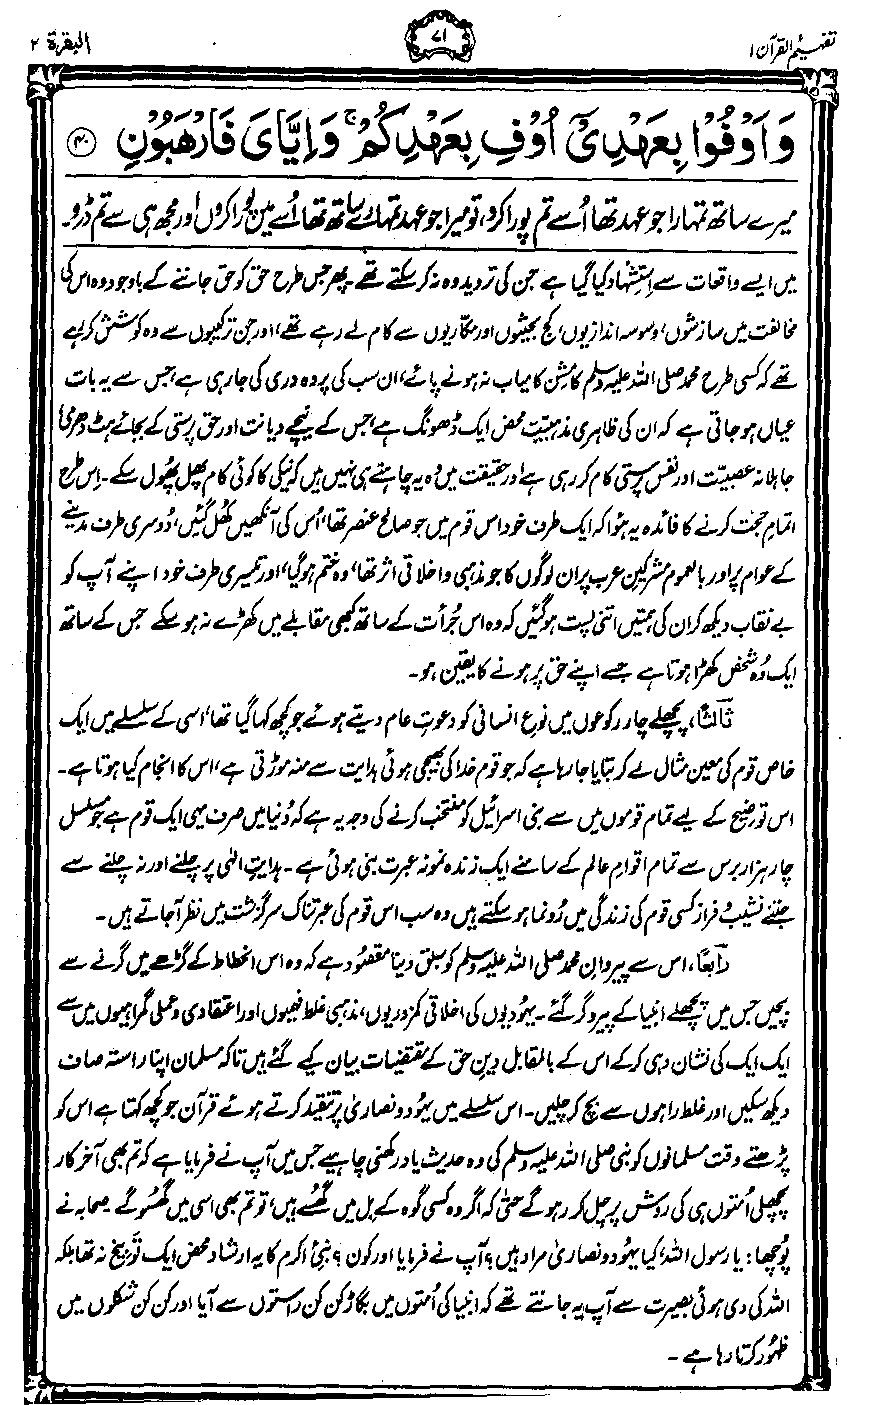 تفہیم القرآن ۱
۷۱
البقرۃ ۲
وَاَوْفُوْا بِعَهْدِیْۤ اُوْفِ بِعَهْدِكُمْ ۚ وَاِیَّایَ فَارْهَبُوْنِ ﴿۴۰﴾
میرے ساتھ تمہارا جو عہد تھا اُسے تم پورا کرو، تو میرا جو عہد تمہارے ساتھ تھا اُسے میں پُورا کروں اور مجھ ہی سے تم ڈرو۔
میں ایسے واقعات سے اِستِشہاد کیا گیا ہے جن کی تردید وہ نہ کر سکتے تھے۔ پھر جس طرح حق کو حق جاننے کے باوجود وہ اس کی
مخالفت میں سازشوں، وسوسہ اندازیوں، کج بحثیوں اور مکّاریوں سے کام لے رہے تھے، اور جن ترکیبوں سے وہ کوشش کر رہے
تھے کہ کسی طرح محمد صلی اللہ علیہ وسلم کا مشن کامیاب نہ ہونے پائے، ان سب کی پردہ دری کی جا رہی ہے، جس سے یہ بات
عیاں ہو جاتی ہے کہ ان کی ظاہری مذہبیّت محض ایک ڈھونگ ہے، جس کے نیچے دیانت اور حق پرستی کے بجائے ہٹ دھرمی،
جاہلانہ عصبیّت اور نفس پرستی کام کر رہی ہے اور حقیقت میں وہ یہ چاہتے ہی نہیں ہیں کہ نیکی کا کوئی کام پھل پھُول سکے۔ اِس طرح
اتمامِ حجت کرنے کا فائدہ یہ ہوا کہ ایک طرف خود اس قوم میں جو صالح عنصر تھا، اُس کی آنکھیں کھُل گئیں، دُوسری طرف مدینے
کے عوام پر اور بالعموم مشرکینِ عرب پر ان لوگوں کا جو مذہبی و اخلاقی اثر تھا، وہ ختم ہو گیا، اور تیسری طرف خود اپنے آپ کو
بے نقاب دیکھ کر ان کی ہمتیں اتنی پست ہو گئیں کہ وہ اس جُرأت کے ساتھ کبھی مقابلے میں کھڑے نہ ہو سکے جس کے ساتھ
ایک وُہ شخص کھڑا ہوتا ہے جسے اپنے حق پر ہونے کا یقین ہو۔
ثالثاً، پچھلے چار رکوعوں میں نوعِ انسانی کو دعوتِ عام دیتے ہوئے جو کچھ کہا گیا تھا، اسی کے سلسلے میں ایک
خاص قوم کی معین مثال لے کر بتایا جا رہا ہے کہ جو قوم خدا کی بھیجی ہوئی ہدایت سے منہ موڑتی ہے، اس کا انجام کیا ہوتا ہے۔
اس توضیح کے لیے تمام قوموں میں سے بنی اسرائیل کو منتخب کرنے کی وجہ یہ ہے کہ دُنیا میں صرف یہی ایک قوم ہے جو مسلسل
چار ہزار برس سے تمام اقوامِ عالم کے سامنے ایک زندہ نمونۂ عبرت بنی ہوئی ہے۔ ہدایتِ الٰہی پر چلنے اور نہ چلنے سے
جتنے نشیب و فراز کسی قوم کی زندگی میں رُونما ہو سکتے ہیں وہ سب اس قوم کی عبرتناک سرگزشت میں نظر آجاتے ہیں۔
رابعاً، اس سے پیروانِ محمد صلی اللہ علیہ وسلم کو سبق دینا مقصُود ہے کہ وہ اس انحطاط کے گڑھے میں گرنے سے
بچیں جس میں پچھلے انبیا کے پیرو گر گئے۔ یہودیوں کی اخلاقی کمزوریوں، مذہبی غلط فہمیوں اور اعتقادی و عملی گمراہیوں میں سے
ایک ایک کی نشان دہی کر کے اس کے بالمقابل دینِ حق کے مقتضیات بیان کیے گئے ہیں تاکہ مسلمان اپنا راستہ صاف
دیکھ سکیں اور غلط راہوں سے بچ کر چلیں۔ اس سلسلے میں یہُود و نصاریٰ پر تنقید کرتے ہوئے قرآن جو کچھ کہتا ہے اس کو
پڑھتے وقت مسلمانوں کو نبی صلی اللہ علیہ وسلم کی وہ حدیث یاد رکھنی چاہیے جس میں آپ نے فرمایا ہے کہ تم بھی آخر کار
پچھلی اُمتوں ہی کی روش پر چل کر رہو گے حتیٰ کہ اگر وہ کسی گوہ کے بِل میں گھُسے ہیں، تو تم بھی اسی میں گھُسو گے۔ صحابہ نے
پُوچھا: یا رسول اللہ، کیا یہُود و نصاریٰ مراد ہیں؟ آپ نے فرمایا اور کون؟ نبیِ اکرم کا یہ ارشاد محض ایک توبیخ نہ تھا بلکہ
اللہ کی دی ہوئی بصیرت سے آپ یہ جانتے تھے کہ انبیا کی اُمتوں میں بگاڑ کن کن راستوں سے آیا اور کن کن شکلوں میں
ظہُور کرتا رہا ہے۔